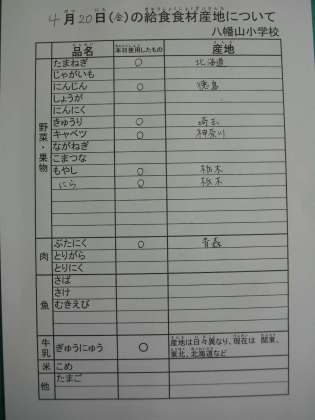 4月20日(金)の給食食材産地について
八幡山小学校
品名 本日使用したもの 産地
野菜・果物
たまねぎ ○ 北海道
じゃがいも
にんじん ○ 徳島
しょうが
にんにく
きゅうり ○ 埼玉
キャベツ ○ 神奈川
ながねぎ
こまつな
もやし ○ 栃木
にら ○ 栃木
肉
ぶたにく ○ 青森
とりがら
とりにく
魚
さば
さけ
むきえび
牛乳 ぎゅうにゅう ○ 産地は日々異なり、現在は 関東、
東北、北海道など
米 こめ
他 たまご